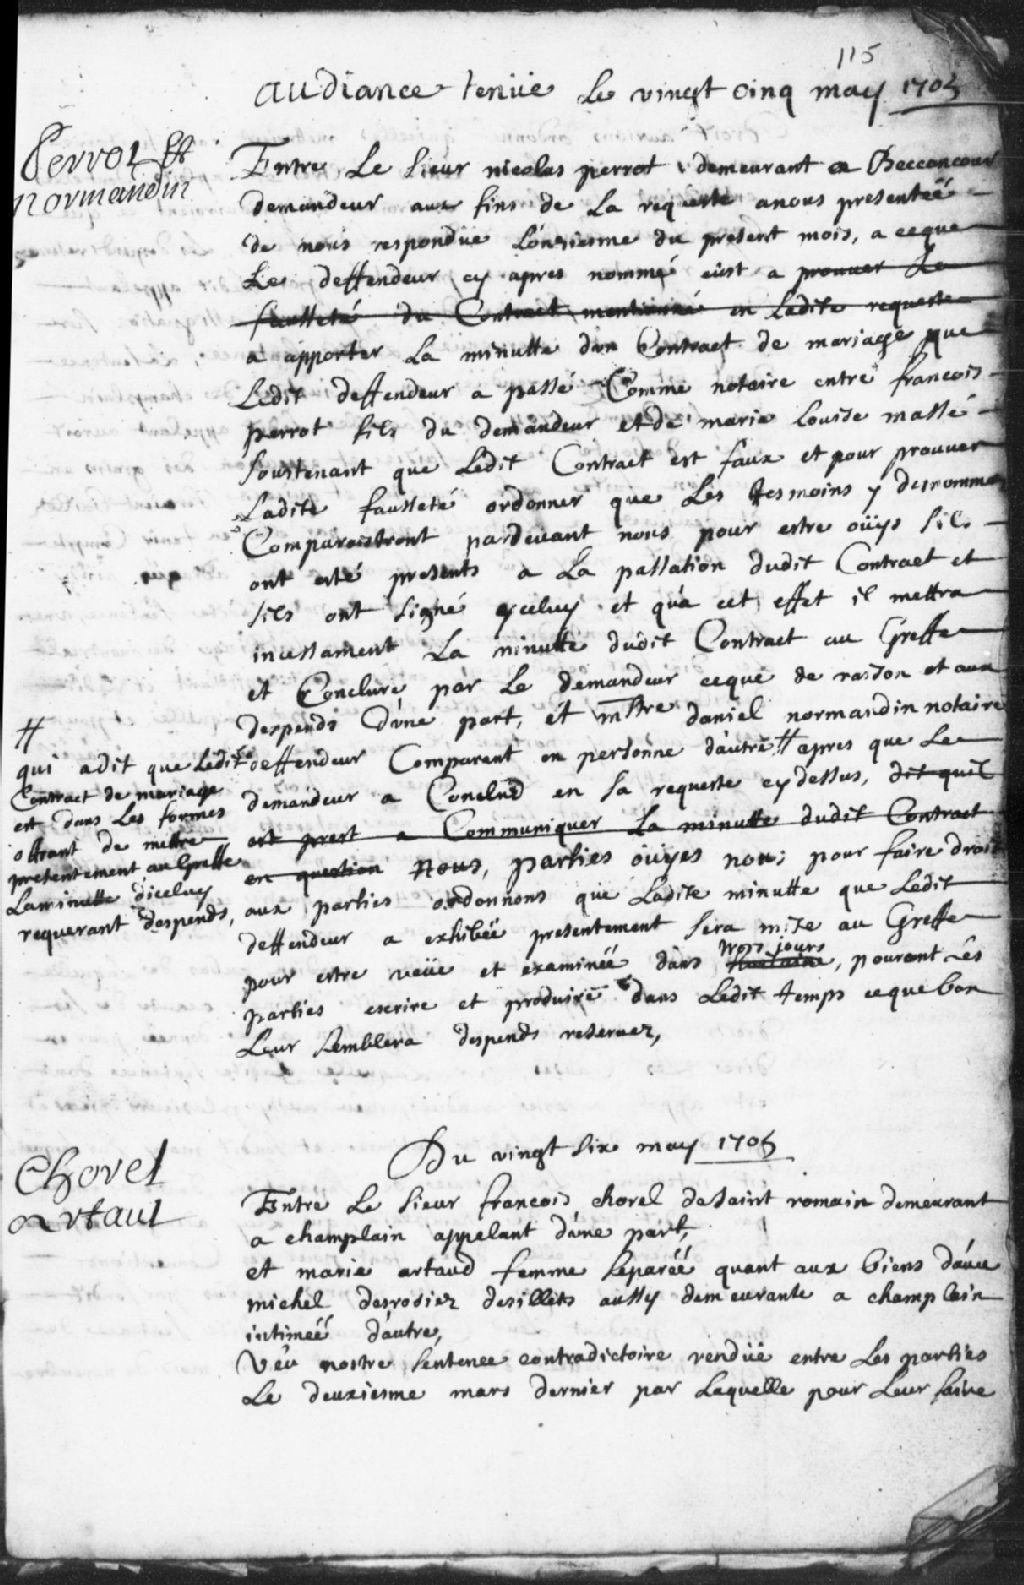 115
audiance tenüe Le vingt cinq may 1705
Perrot et
normandin
Entre Le sieur nicolas perrot demeurant a Becconcour
demandeur aux fins de La requeste anous presentéé
de nous respondüe Lonziesme du present mois, a ceque
Le deffendeur cy apres nommé eust a prouver La
fausseté du Contract mentionné en Ladite requeste
a apporter La minutte dun Contract de mariage que
Ledit deffendeur a passé Comme notaire entre francois
perrot fils du demandeur et de marie Louise massé
soustenant que Ledit Contract est faux et pour prouver
Ladite fausseté ordonner que Les tesmoins y desnommez
Comparoistront pardevant nous pour estre oüys sils
ont esté presents a La passation dudit Contract et
sils ont signé yceluy et qua cet effet il mettra
incessament La minutte dudit Contract au Greffe
et Conclure par Le demandeur ceque de raison et aux
despends d'une part, et mstre daniel normandin notaire
deffendeur Comparant en personne d'autre # apres que Le
demandeur a Conclud en sa requeste cy dessus, dit quil
est prest a Communiquer La minutte dudit Contract
en question Nous, parties oüyes nous pour faire droit
aux parties ordonnons que Ladite minutte que Ledit
deffendeur a exhibée presentement sera mise au Greffe
pour estre veüe et examinéé dans huitaine trois jours, pouront Les
parties escrire et produire dans Ledit temps ceque bon
Leur semblera despends reservez,
#
qui adit que Ledit
Contract de mariage
est dans Les formes
offrant de mettre
presentement au Greffe
Laminutte diceluy
requerant despends,
Du vingt six may 1705
Chorel
artaut
Entre Le sieur francois chorel desaint romain demeurant
a champlain appelant d'une part,
et marie artaud femme separéé quant aux biens dávec
michel desrosiez desillets aussy demeurante a champlain
intiméé d'autre,
Veu nostre sentence contradictoire rendüe entre Les parties
Le deuxiesme mars dernier par Laquelle pour Leur faire